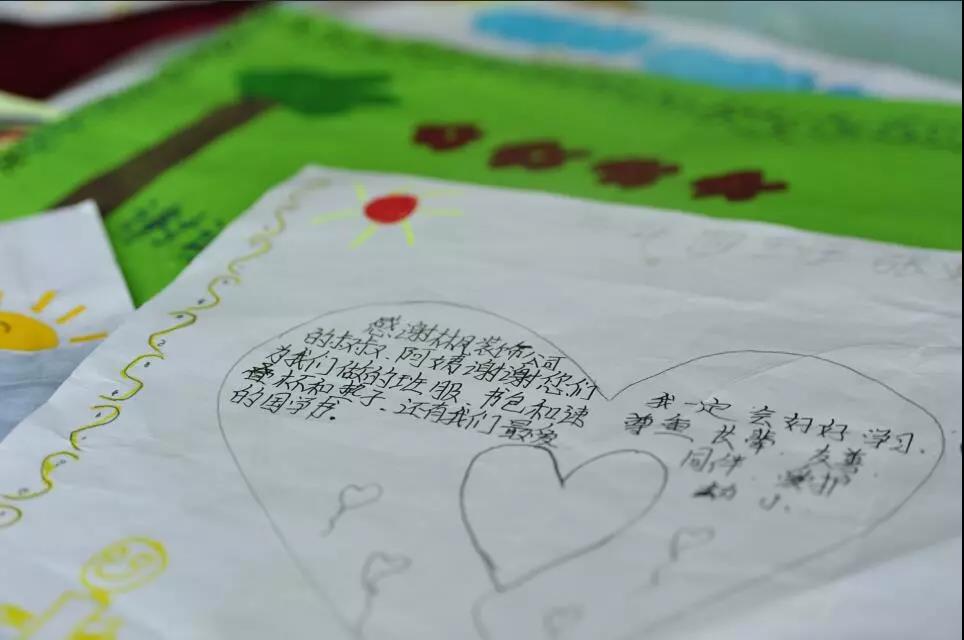 感谢林凤装饰公司
的叔叔、阿姨谢谢您们
为我们做的班服、书包和速
叠杯和垫子.还有我们最爱
的国学书.
我一定会好好学习.
尊重长辈.友善
同伴.爱护
幼小.